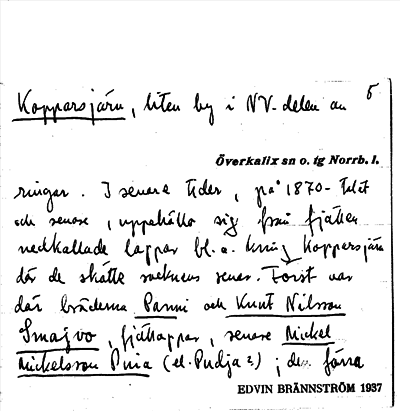 Kopparsjärn, liten by i NV-delen av 5
Överkalix sn o. tg Norrb. l.
ringar. I senare tider, på 1870-talet
och senare, uppehöllo sig från fjällen
nedkallade lappar bl.a. kring Kopparsjärn
där de skötte socknens renar. Först var
där bröderna Panni och Kunt Nilsson
Smajvo, fjällappar, senare Mickel
Mickelsson Puia (el. Pudja?); den förra
EDVIN BRÄNNSTRÖM 1937